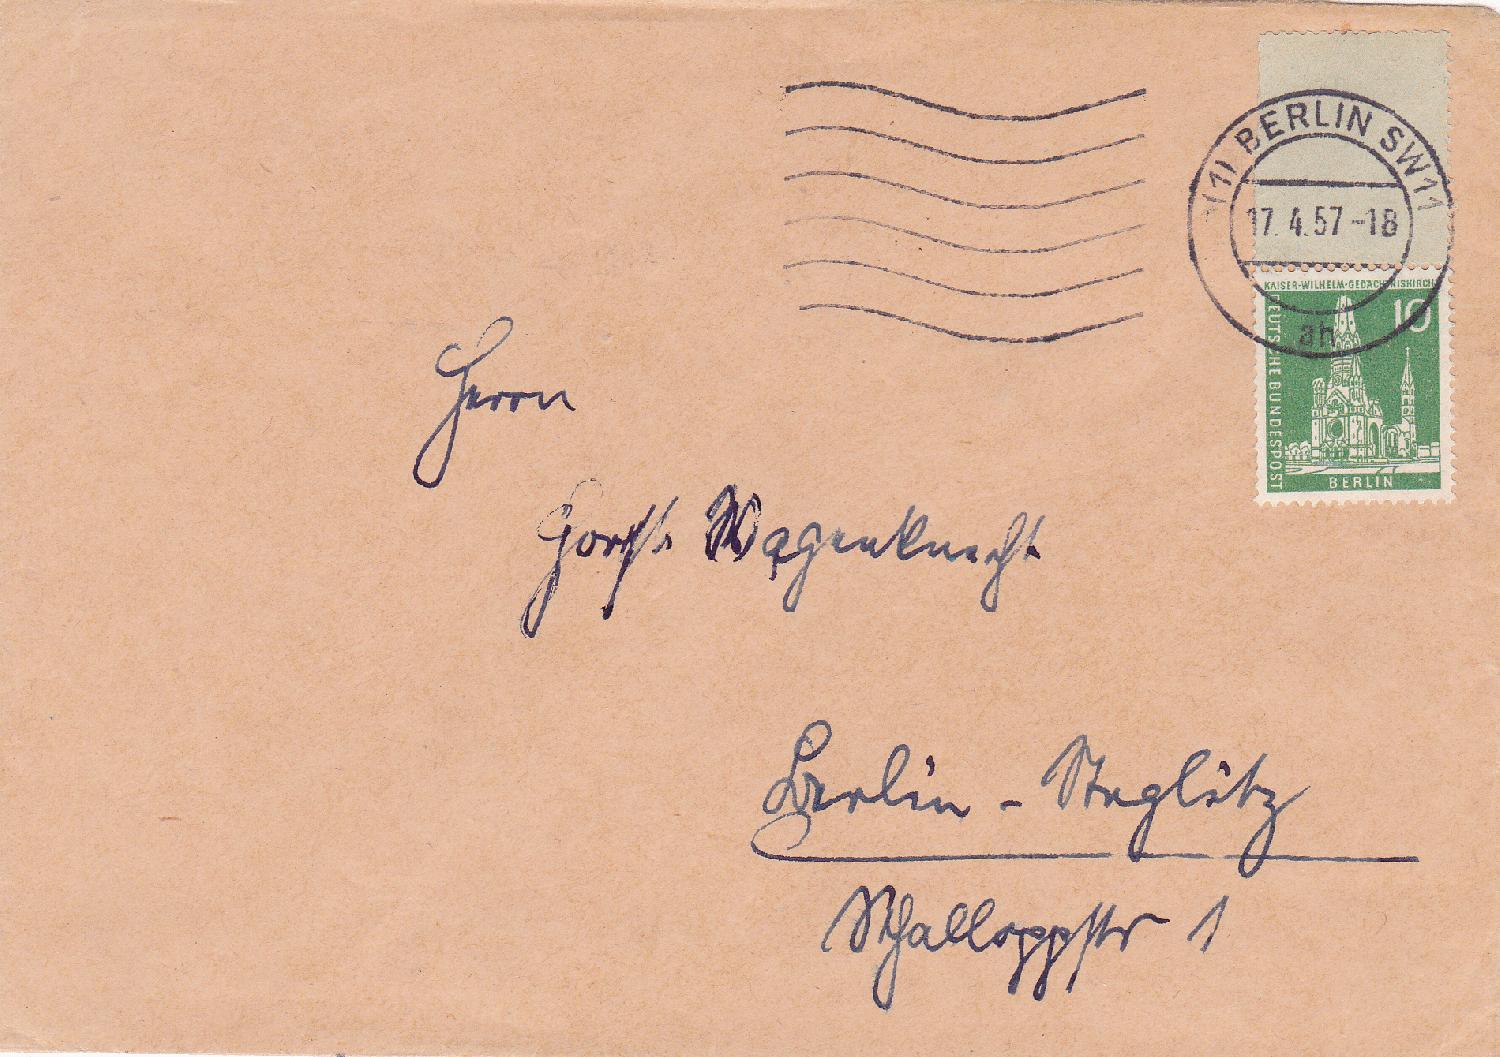 (1) BERLIN SW11
17.4.57-18
KAISER-WILHELM-GEDÄCHTNISKIRCHE
10
an
DEUTSCHE BUNDESPOST
BERLIN
Herrn
Horst Wagenknecht
Berlin - Steglitz
Schalloppstr 1